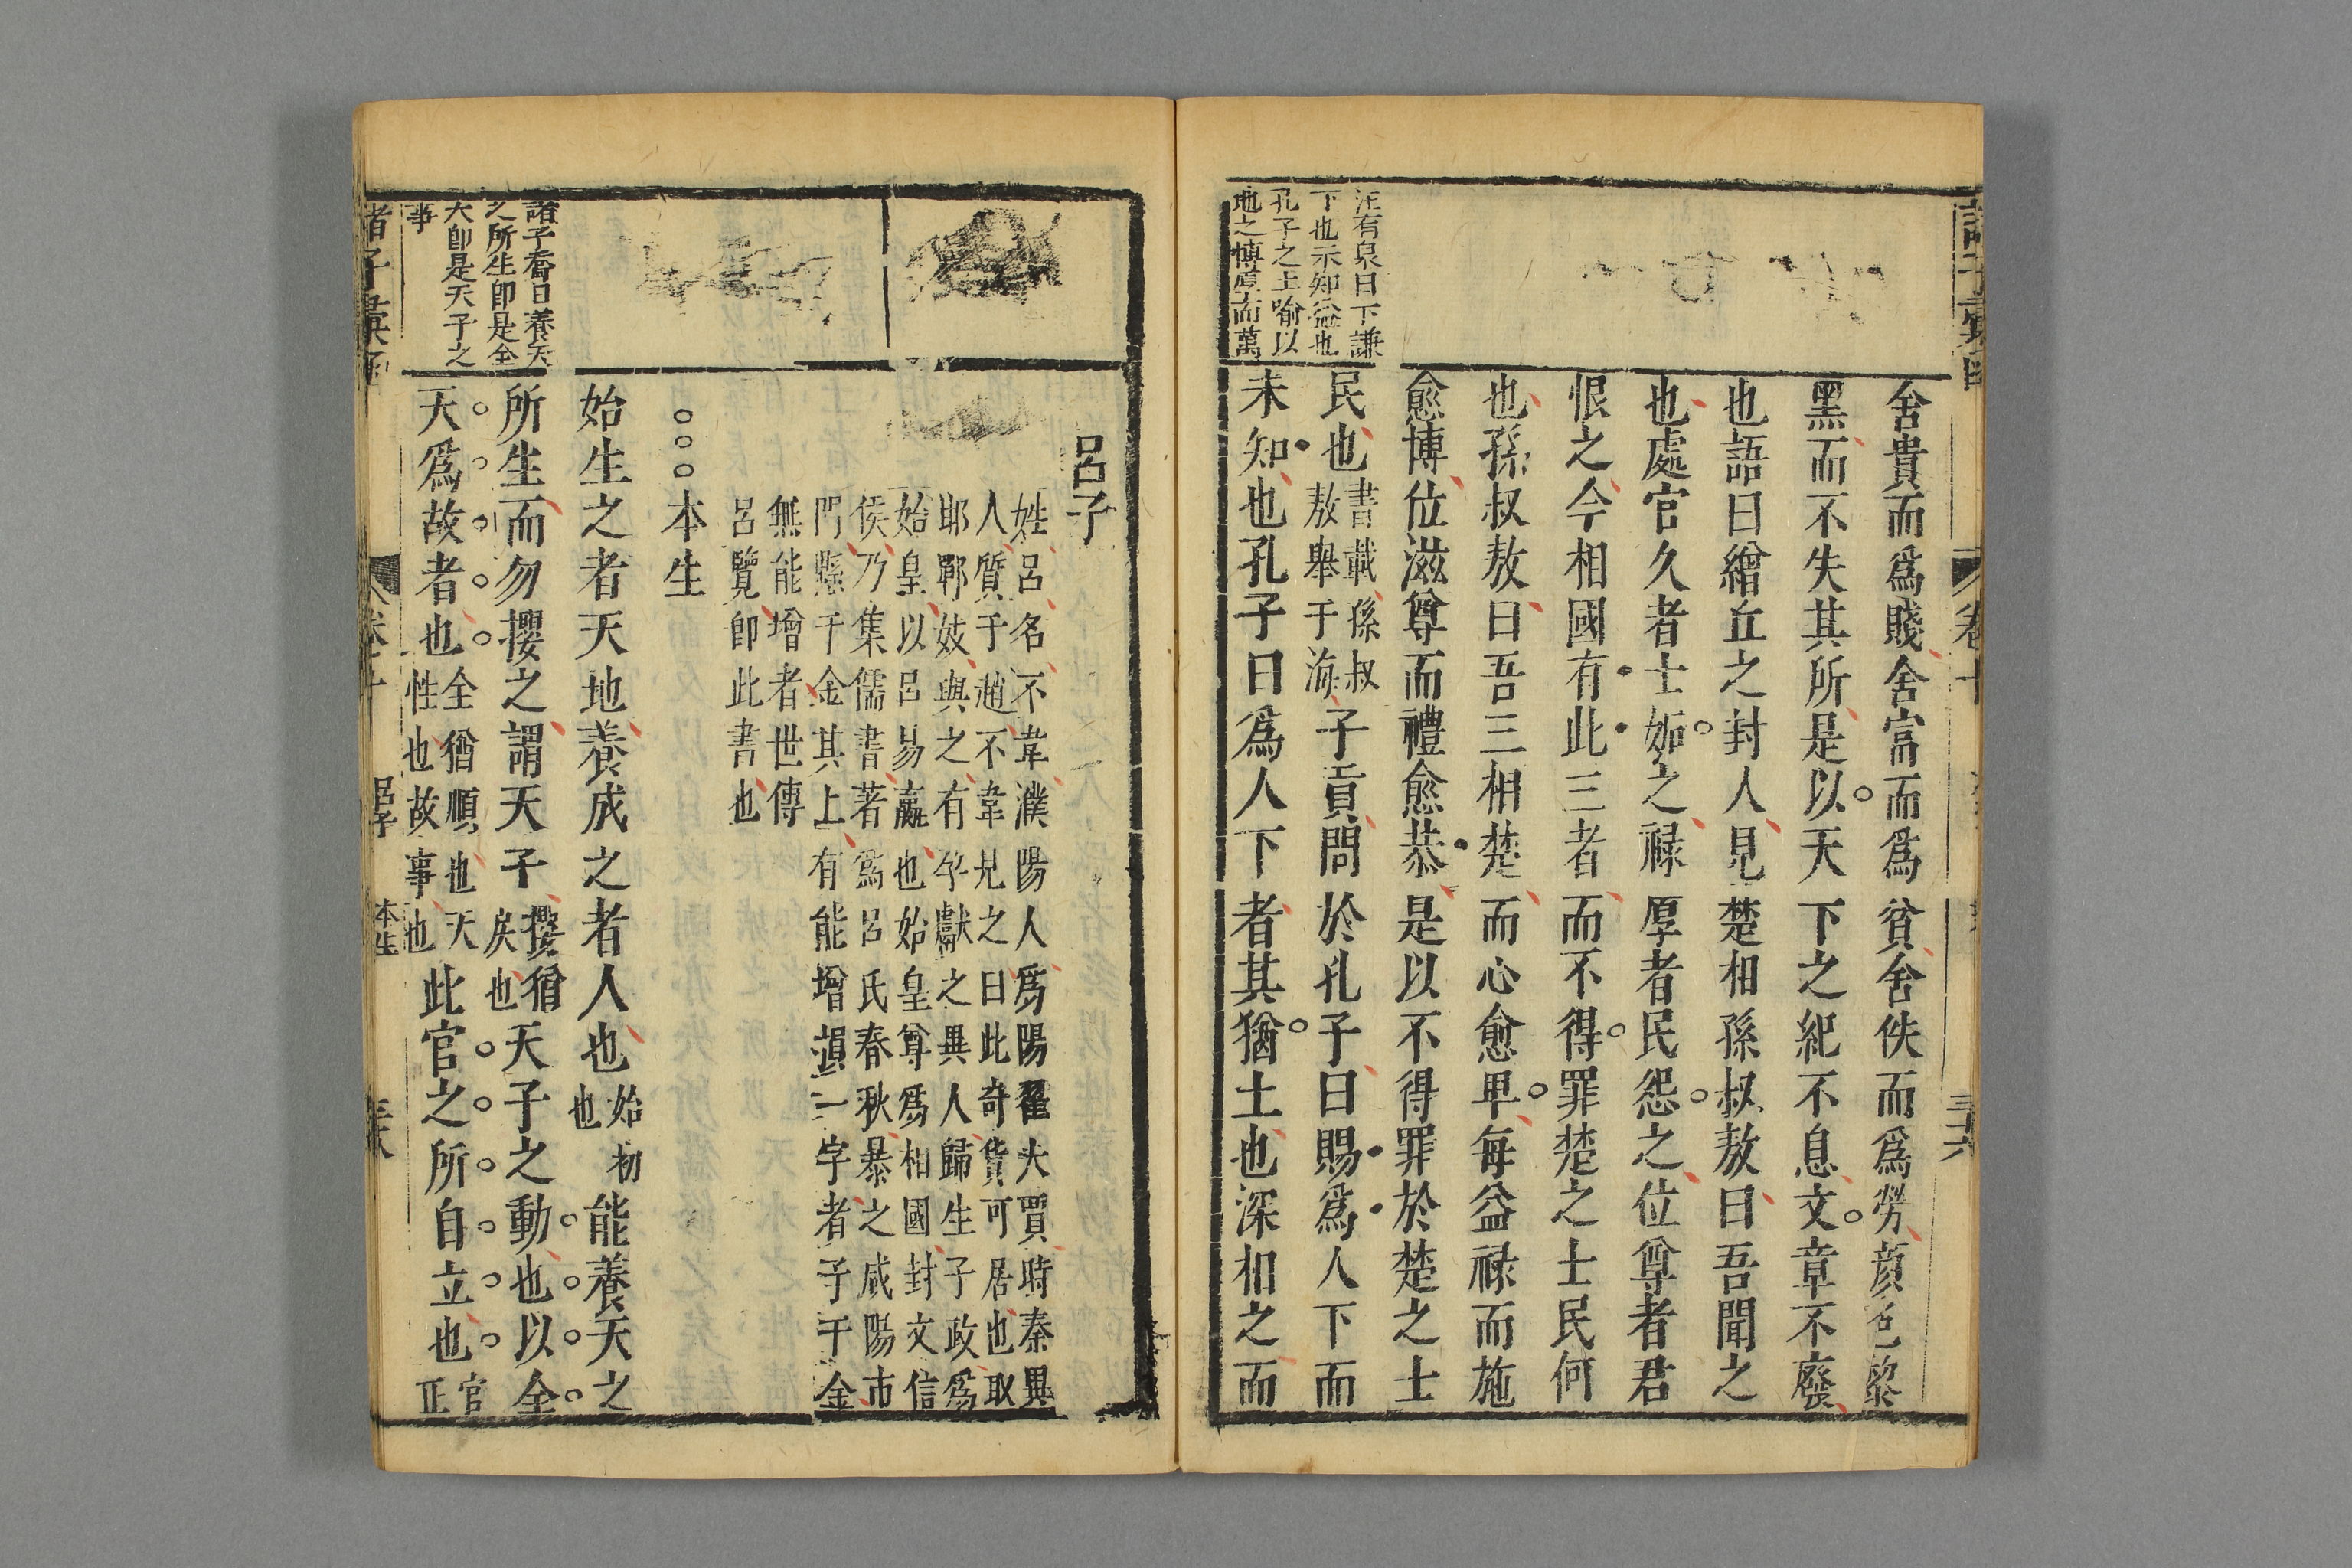 卷十
三十六
汪有泉曰下謙
下也示知益也
孔子之土喻以
地之慎厚而萬
舍貴而爲賤舍富而爲貧舍佚而爲勞顔色黎
黑而不失其所是以天下之紀不息文章不廢
也語曰繒丘之封人見楚相孫叔敖曰吾聞之
也處官久者士妬之祿厚者民怨之位尊者君
恨之今相國有此三者而不得罪楚之士民何
也孫叔敖曰吾三相楚而心愈卑每益祿而施
愈博位滋尊而禮愈恭是以不得罪於楚之士
民也書載孫叔敖舉于海子貢問於孔子曰賜爲人下而
未知也孔子曰爲人下者其猶土也深相之而
呂子
姓呂名不韋濮陽人爲陽翟大賈時秦異
人質于趙不韋見之曰此奇貨可居也取
邯鄲妓與之有孕獻之異人歸生子政爲
始皇以呂易嬴也始皇尊爲相國封文信
侯乃集儒書著爲呂氏春秋暴之咸陽市
門懸千金其上有能增損一字者予千金
無能增者世傳
呂覽卽此書也
○○○本生
始生之者天地養成之者人也始初也能養天之
所生而勿攖之謂天子攖猶戾也天子之動也以全
天爲故者也全猶順也天性也故事也此官之所自立也官正
諸子香曰養天
之所生卽是全
天卽是天子之
事
卷十
呂子
本生